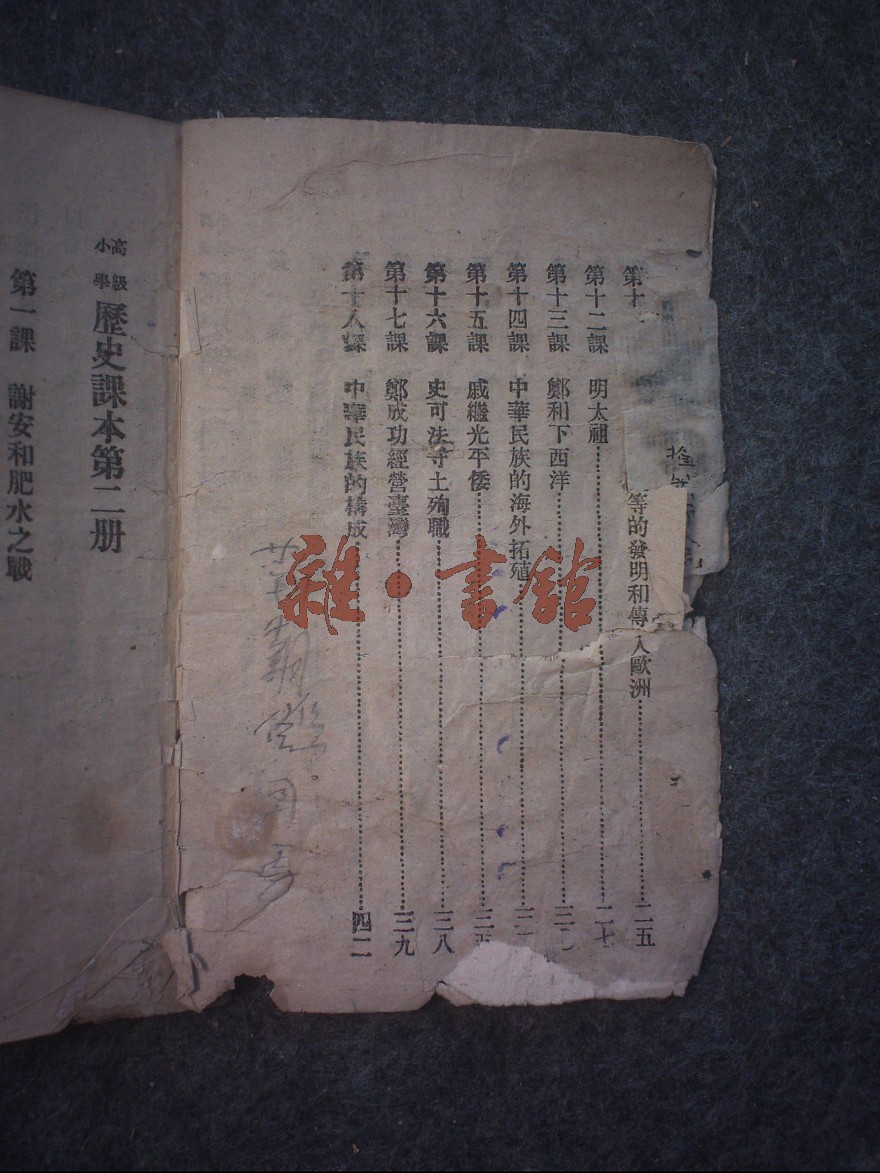 第十
等的發明和傳入歐洲……二五
第十二課 明太祖……二七
第十三課 鄭和下西洋……三
第十四課 中華民族的海外拓殖……三
第十五課 戚繼光平倭……三五
第十六課 史可法守土殉職……三八
第十七課 鄭成功經營臺灣……三九
第十八課 中華民族的構成……四二
雜·書館
高級小學 歷史課本第二册
第一課 謝安和肥水之戰